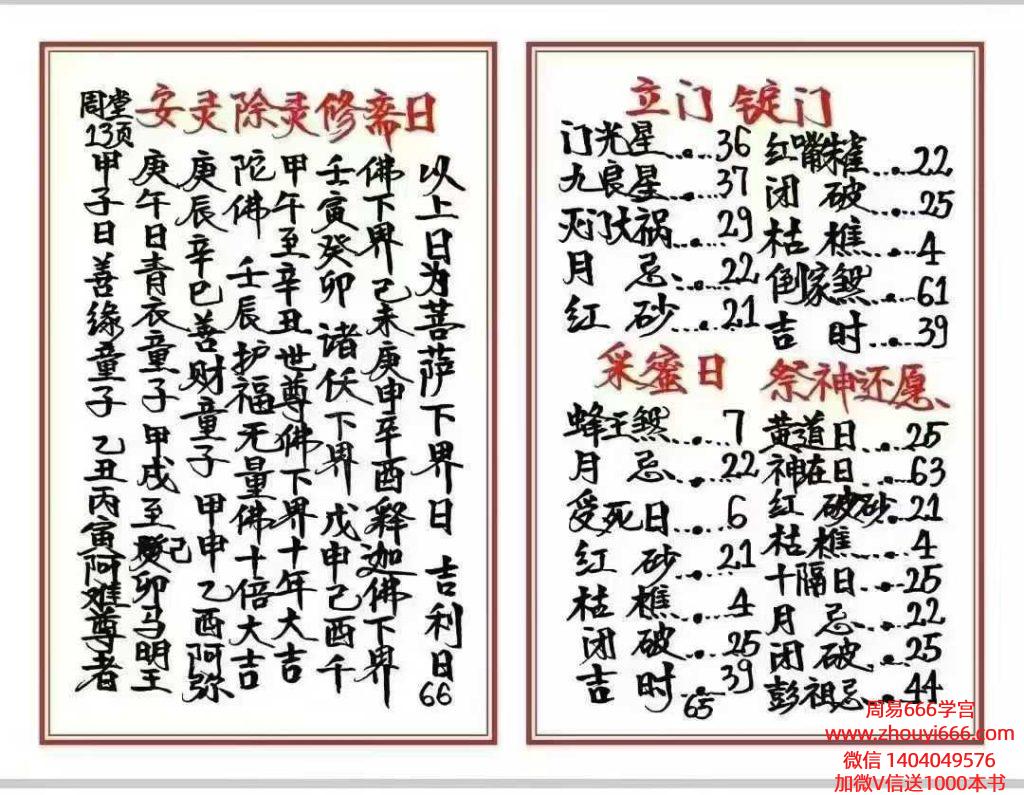 安灵除灵修斋日
周堂
13页
甲子日善缘童子 乙丑丙寅阿难尊者
庚午日青衣童子 甲戌至癸卯己马明王
庚辰辛巳善财童子 甲申乙酉阿弥
陀佛 壬辰护福无量佛十倍大吉
甲午至辛丑世尊佛下界十年大吉
壬寅癸卯 诸伏下界 戊申己酉千
佛下界 己未庚申辛酉释迦佛下界
以上日为菩萨下界日 吉利日
66
立门 锭门
门光星……36
九良星……37
灭门大祸……29
月忌……22
红砂……21
红嘴朱雀……22
闭破……25
枯樵……4
倒家煞……61
吉时……39
采蜜日
蜂王煞……7
月忌……22
受死日……6
红砂……21
枯樵……4
闭破……25
吉时……39
祭神还愿
黄道日……25
神在日……63
红破砂……21
枯樵……4
十隔日……25
月忌……22
闭破……25
彭祖忌……44
65
周易666学宫
www.zhouyi666.com
微信 1404049576
加微V信送1000本书